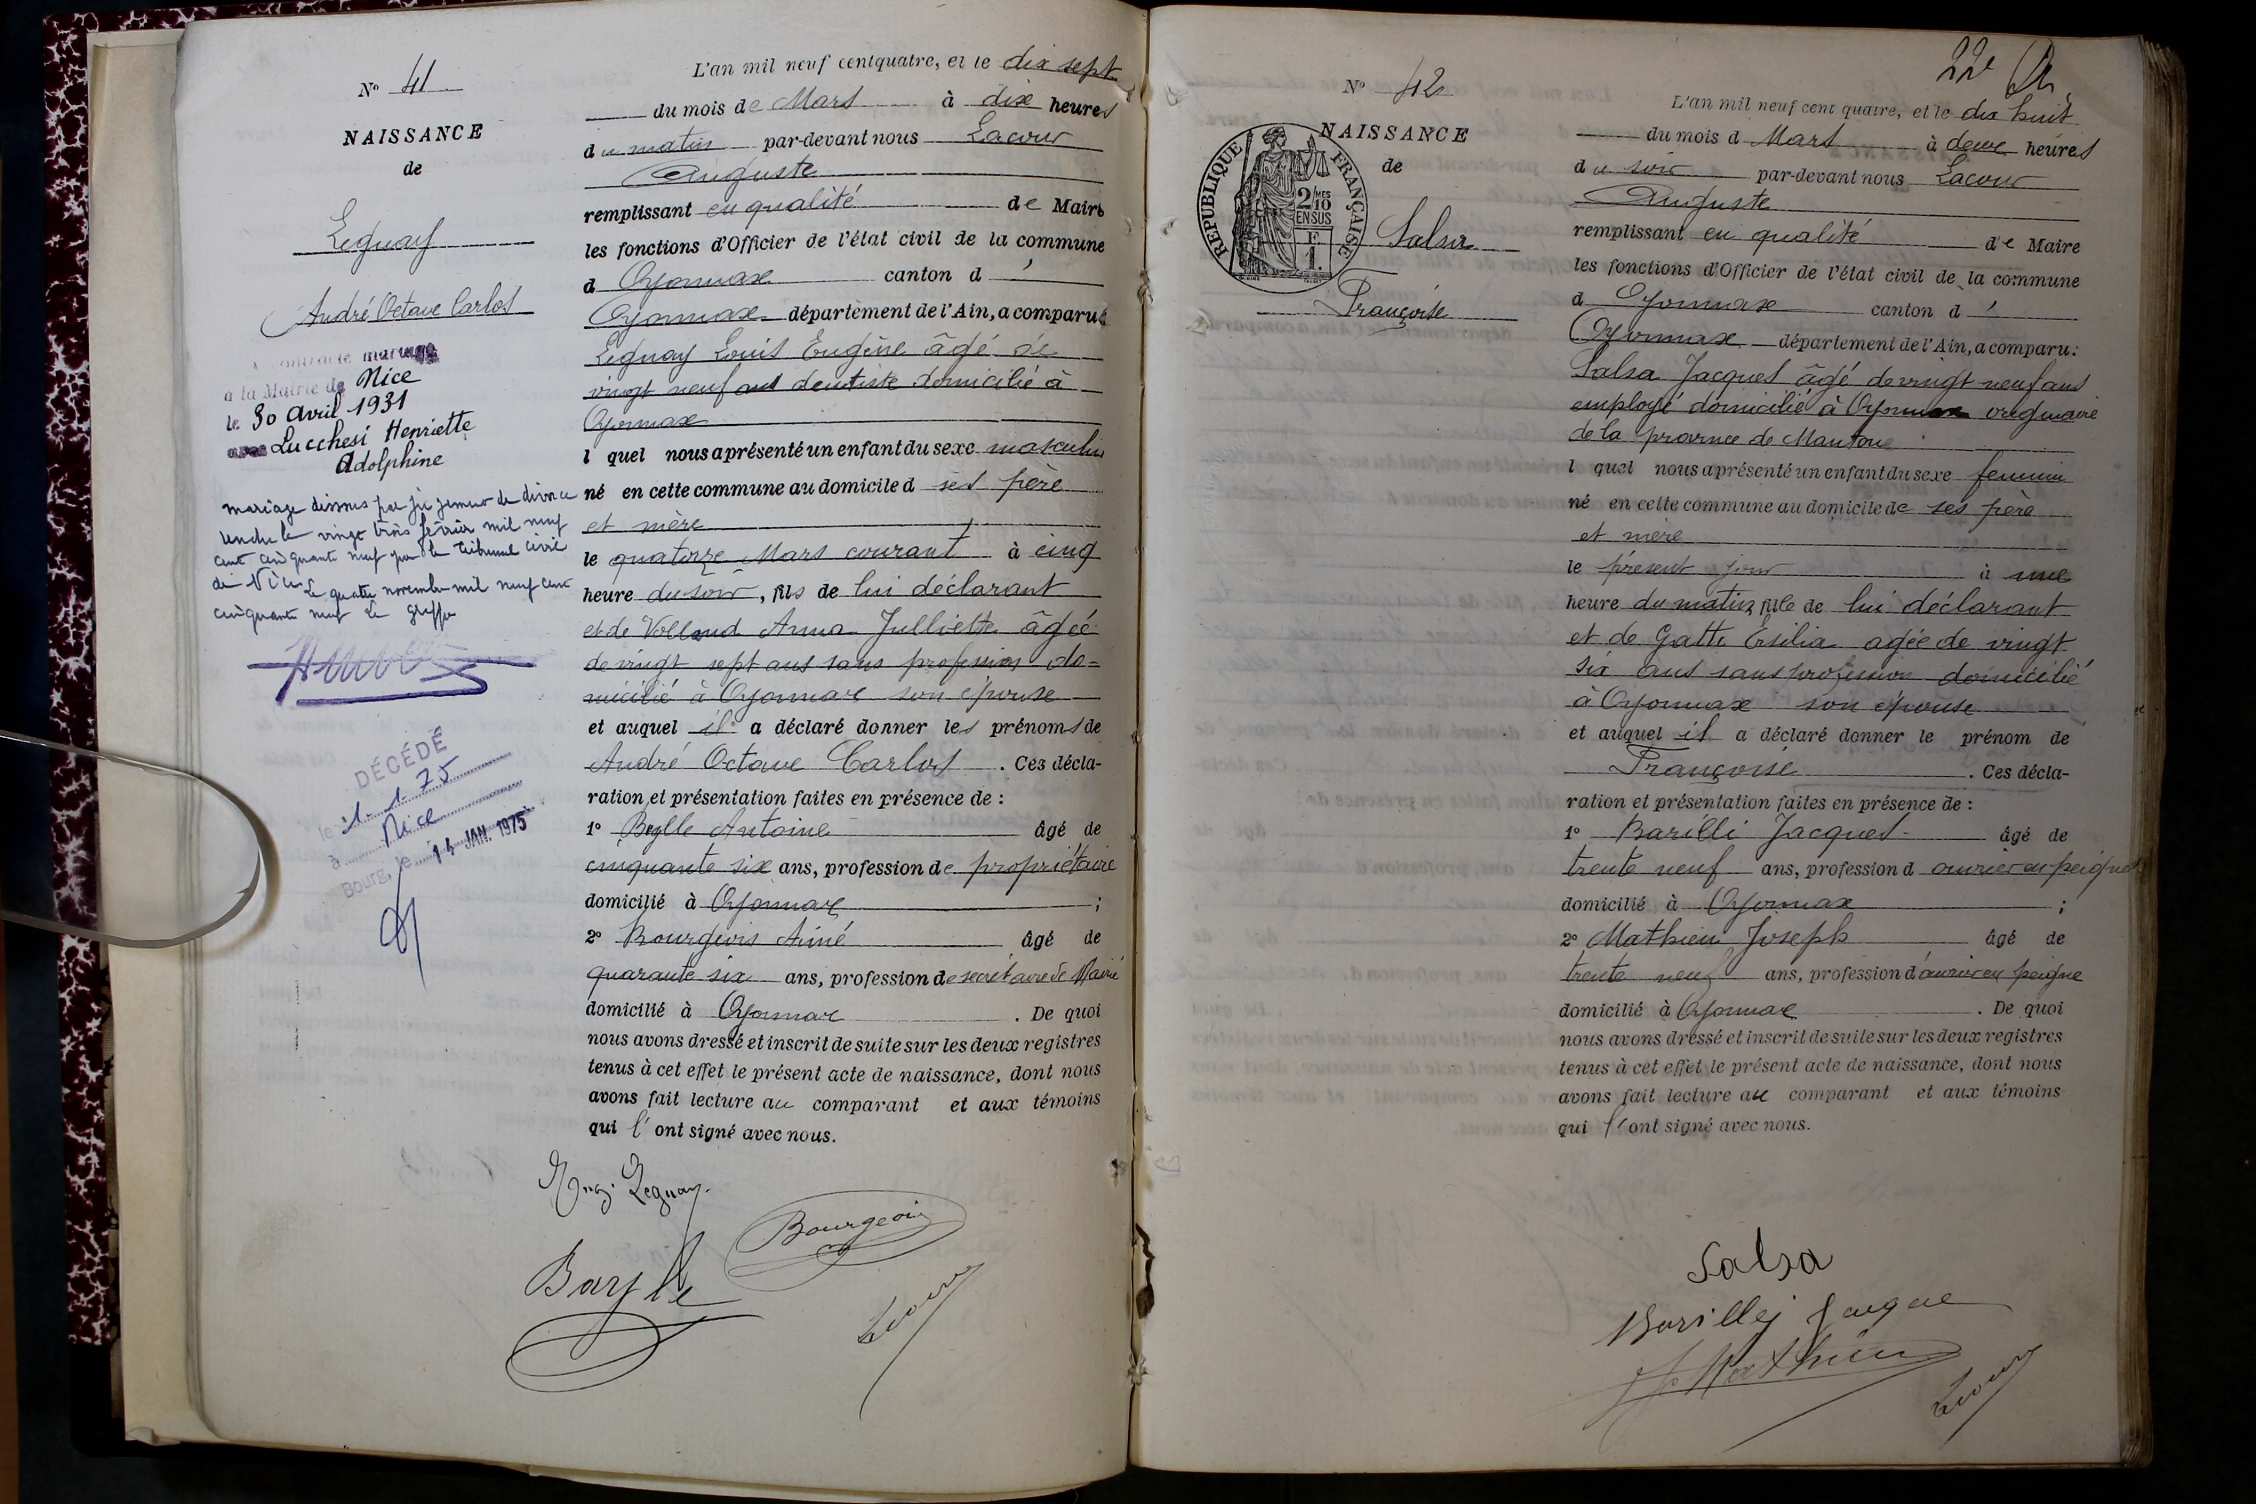 N° 41
NAISSANCE
de
Leguay
André Octave Carlos
mariage
à la Mairie de Nice
le 30 avril 1931
avec Lucchesi Henriette
Adolphine
mariage dissous par jugement de divorce
rendu le vingt trois février mil neuf
cent cinquante neuf par le tribunal civil
de Nice Le quatre novembre mil neuf cent
cinquante neuf Le greffier
DÉCÉDÉ
le 1.1.75
à Nice
Bourg, le 14 JAN. 1975
L'an mil neuf cent quatre, et le dix sept
du mois de Mars à dix heures
du matin par-devant nous Lacour
Auguste
remplissant en qualité de Maire
les fonctions d'Officier de l'état civil de la commune
d Oyonnax canton d'
Oyonnax département de l'Ain, a comparu:
Leguay Louis Eugène âgé de
vingt neuf ans dentiste domicilié à
Oyonnax
l quel nous a présenté un enfant du sexe masculin
né en cette commune au domicile d ses père
et mère
le quatorze Mars courant à cinq
heure du soir, fils de lui déclarant
et de Volland Anna Julliette âgée
de vingt sept ans sans profession do-
micilié à Oyonnax son épouse
et auquel il a déclaré donner les prénoms de
André Octave Carlos. Ces décla-
ration et présentation faites en présence de :
1° Baylle Antoine âgé de
cinquante six ans, profession de propriétaire
domicilié à Oyonnax ;
2° Bourgeois Aimé âgé de
quarante six ans, profession de secrétaire de Mairie
domicilié à Oyonnax. De quoi
nous avons dressé et inscrit de suite sur les deux registres
tenus à cet effet le présent acte de naissance, dont nous
avons fait lecture au comparant et aux témoins
qui l'ont signé avec nous.
Eug. Leguay.
Bourgeois
Bayle
Lacour
22e
N° 42
NAISSANCE
de
Salsa
Françoise
REPUBLIQUE FRANÇAISE
2/10 MES
EN SUS
F
1.
L'an mil neuf cent quatre, et le dix huit
du mois d Mars à deux heures
du soir par-devant nous Lacour
Auguste
remplissant en qualité de Maire
les fonctions d'Officier de l'état civil de la commune
d Oyonnax canton d'
Oyonnax département de l'Ain, a comparu:
Salsa Jacques âgé de vingt neuf ans
employé domicilié à Oyonnax originaire
de la province de Mantoue
l quel nous a présenté un enfant du sexe feminin
né en cette commune au domicile de ses père
et mère
le présent jour à une
heure du matin, fille de lui déclarant
et de Gatti Ersilia agée de vingt
six ans sans profession domicilié
à Oyonnax son épouse
et auquel il a déclaré donner le prénom de
Françoise. Ces décla-
ration et présentation faites en présence de :
1° Barilli Jacques âgé de
trente neuf ans, profession d ouvrier en peignes
domicilié à Oyonnax ;
2° Mathieu Joseph âgé de
trente neuf ans, profession d'ouvrier en peigne
domicilié à Oyonnax. De quoi
nous avons dressé et inscrit de suite sur les deux registres
tenus à cet effet le présent acte de naissance, dont nous
avons fait lecture au comparant et aux témoins
qui l'ont signé avec nous.
Salsa
Barillej Jacque
J. Mathieu
Lacour